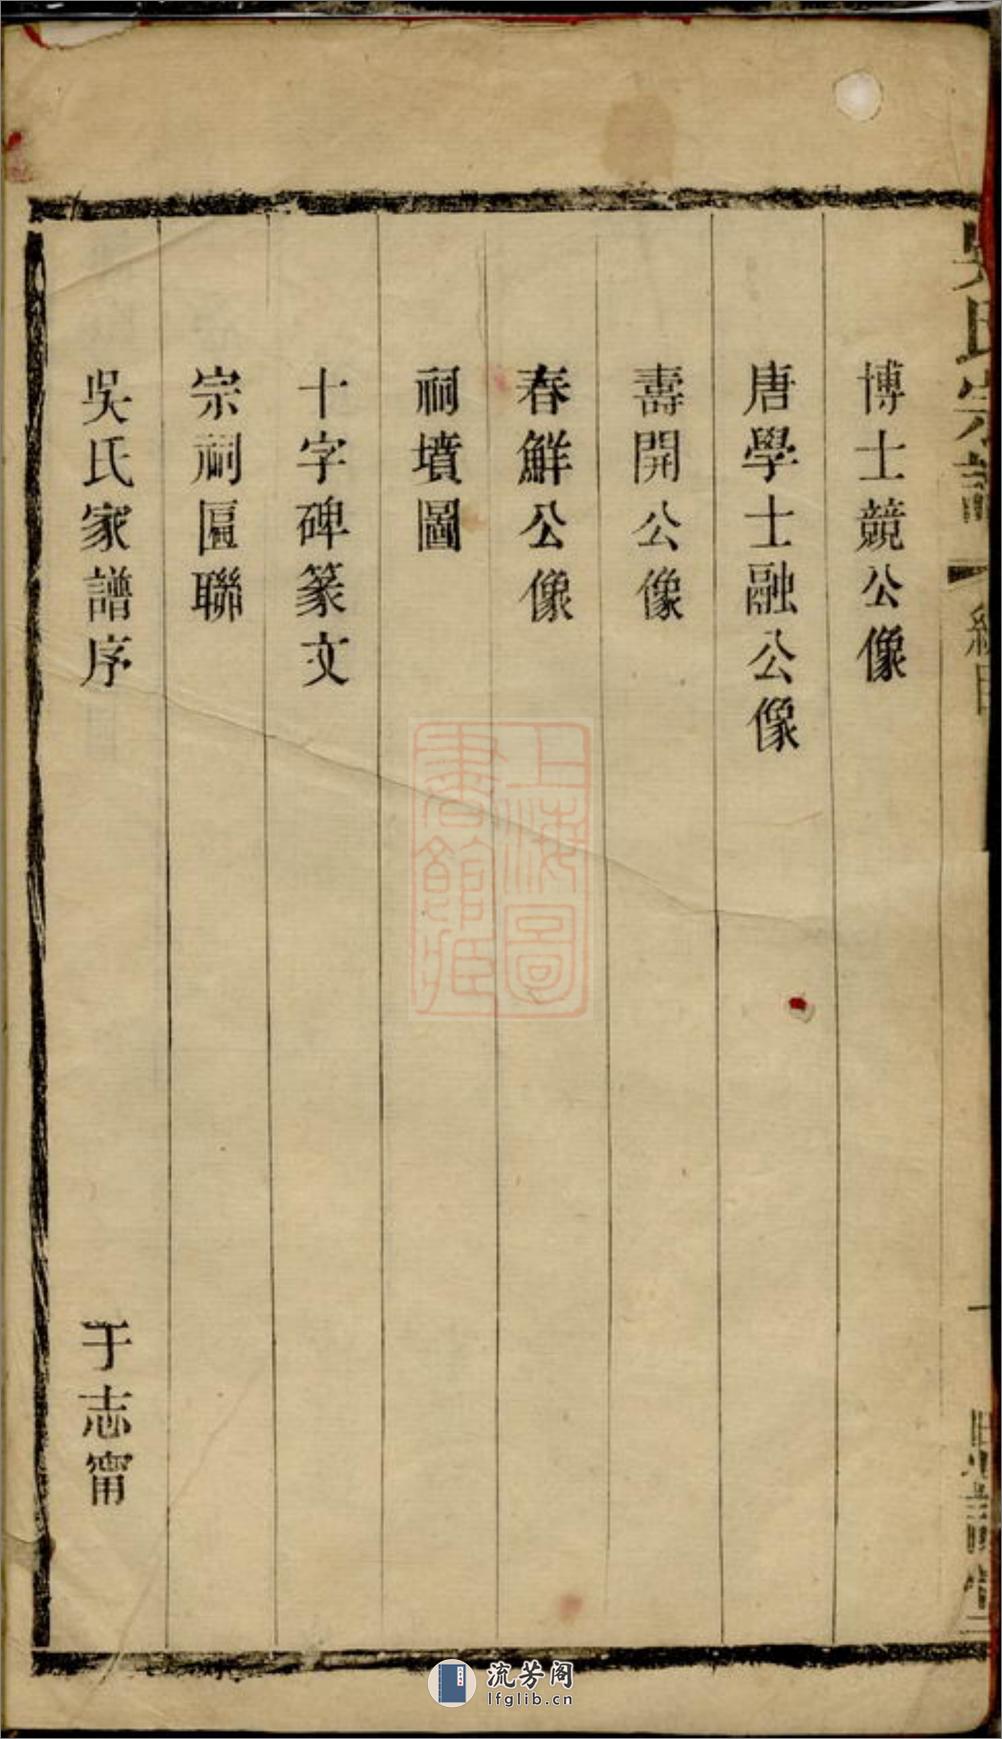 吳氏宗譜
總目
博士競公像
唐學士融公像
壽開公像
春鮮公像
祠墳圖
十字碑篆文
宗祠匾聯
吳氏家譜序 于志甯
上海圖書館藏
流芳阁
lfglib.cn